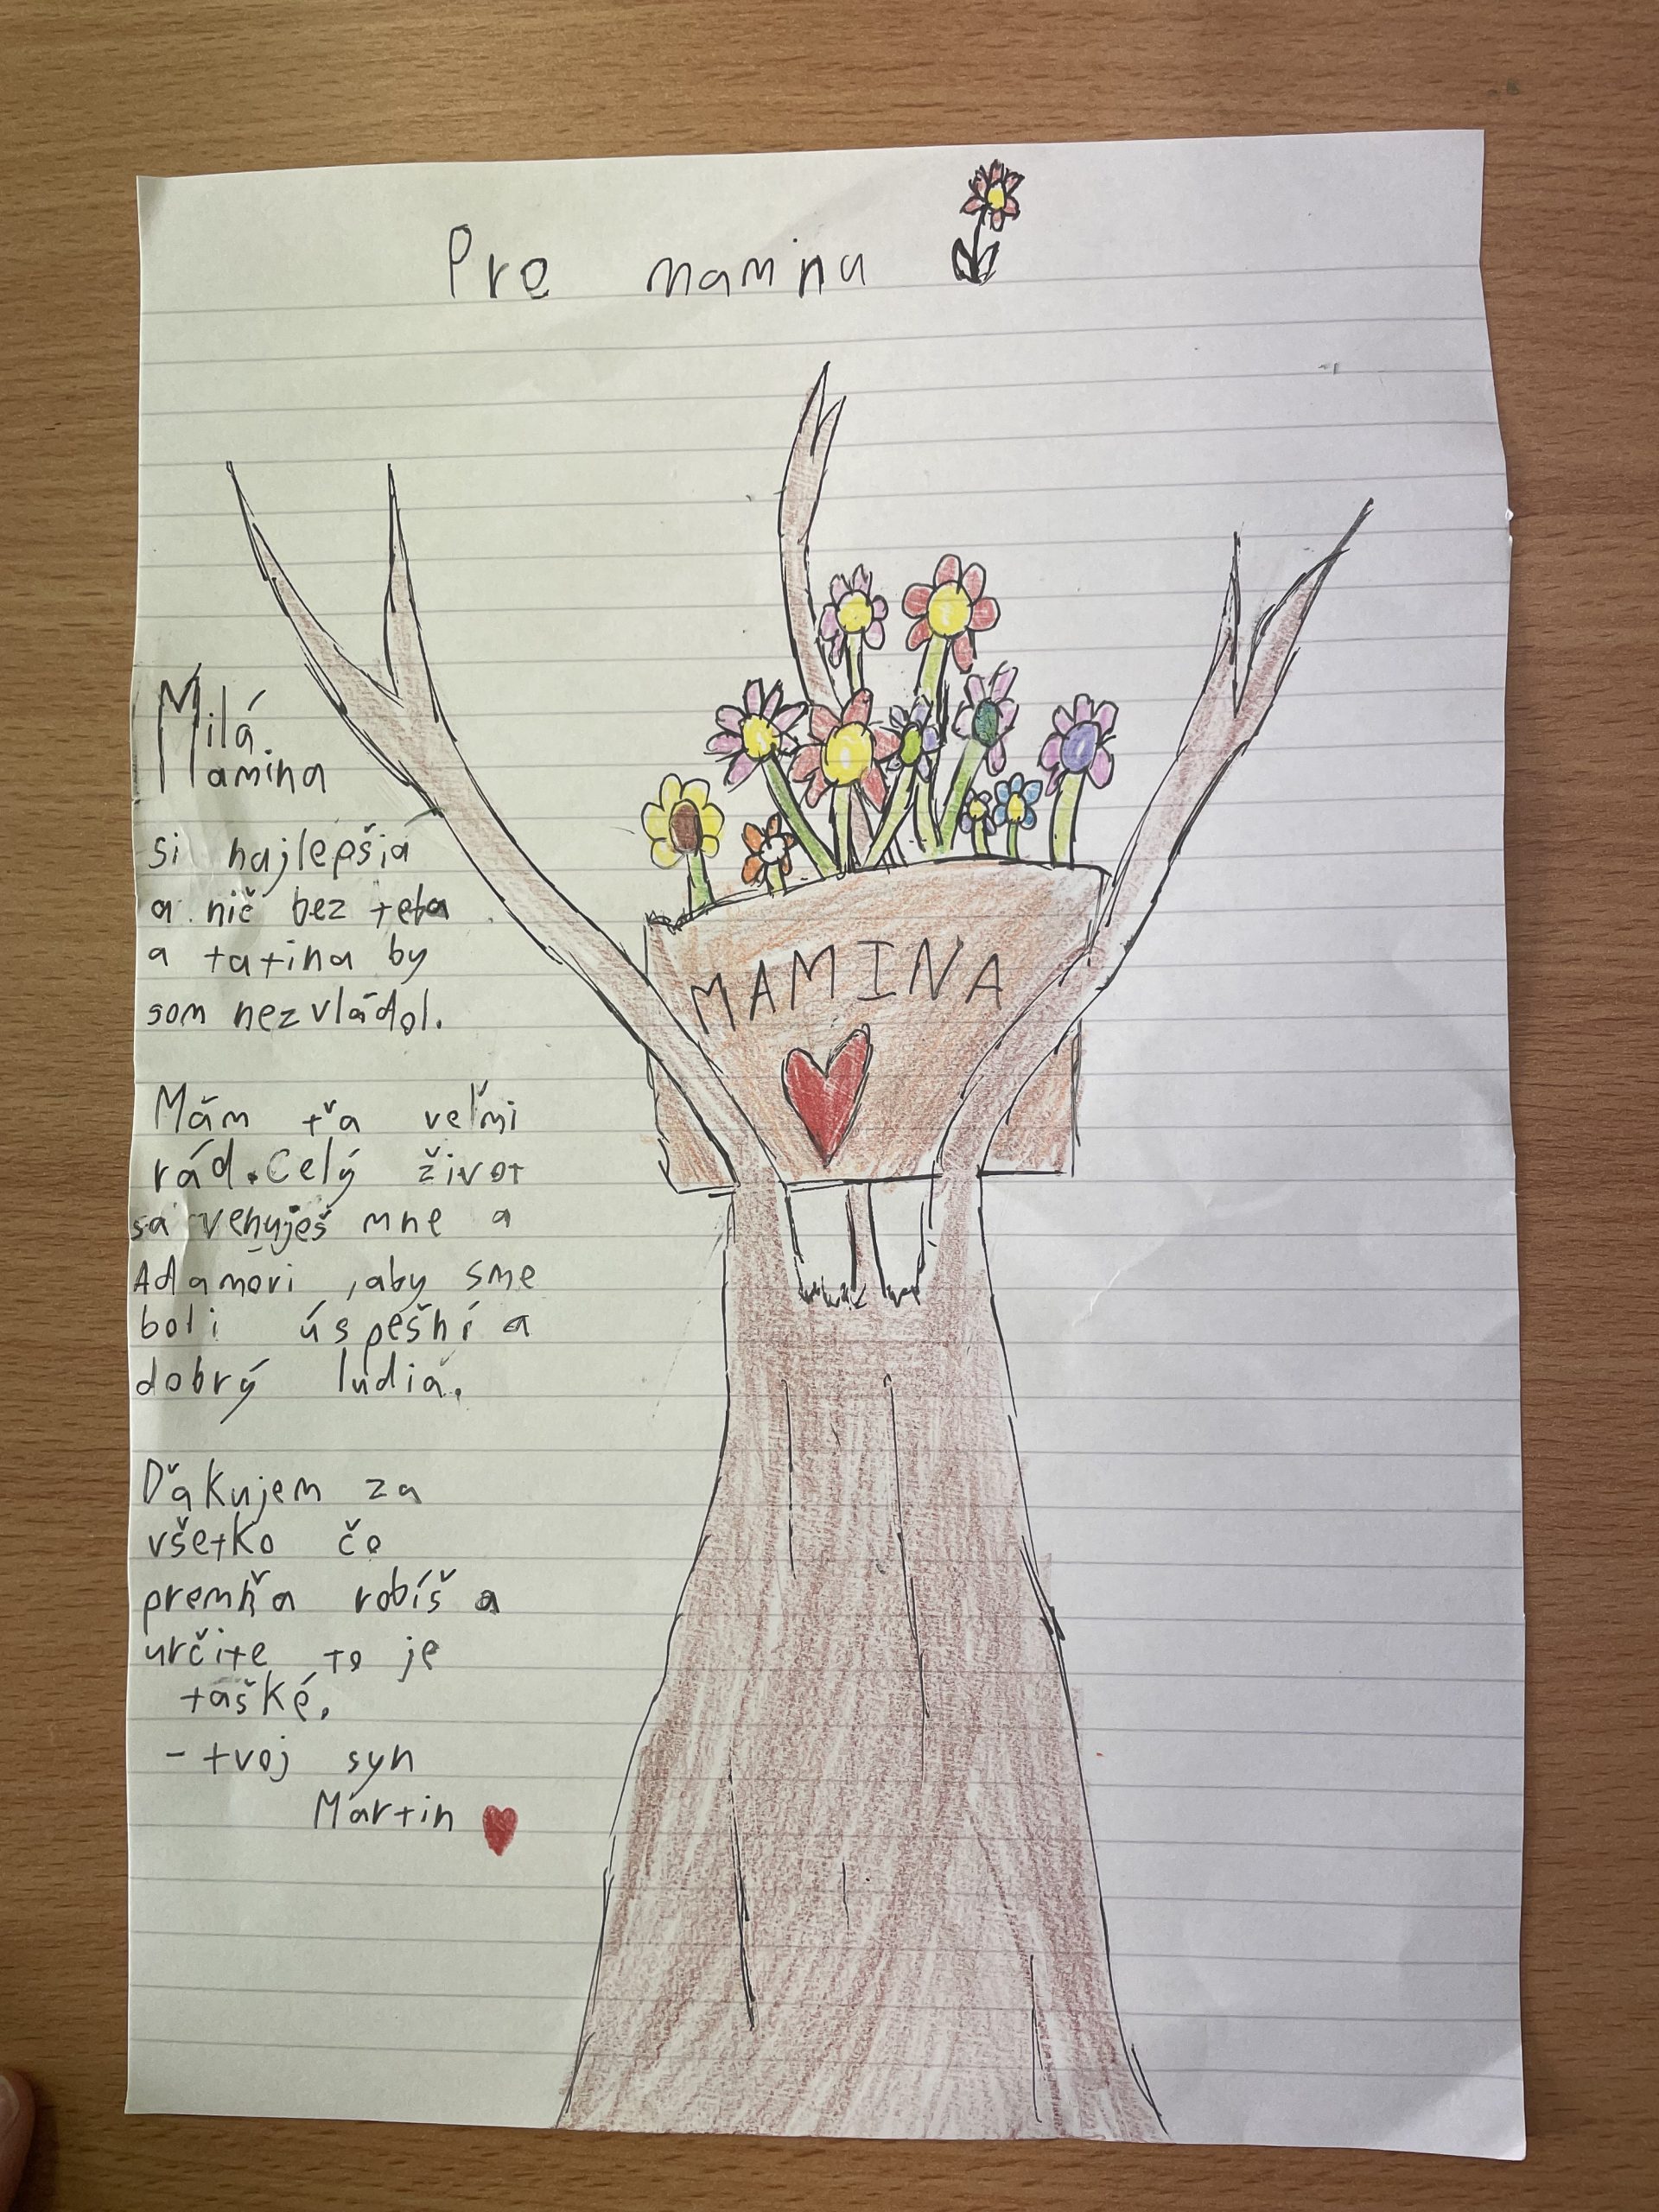 Pre maminu
Milá
Mamina
si najlepšia
a nič bez teba
a tatina by
som nezvládol.
Mám ťa veľmi
rád. Celý život
sa venuješ mne a
Adamovi, aby sme
boli úspešní a
dobrý ludia.
Ďakujem za
všetko čo
premňa robíš a
určite to je
ťašké.
- tvoj syn
Martin
MAMINA